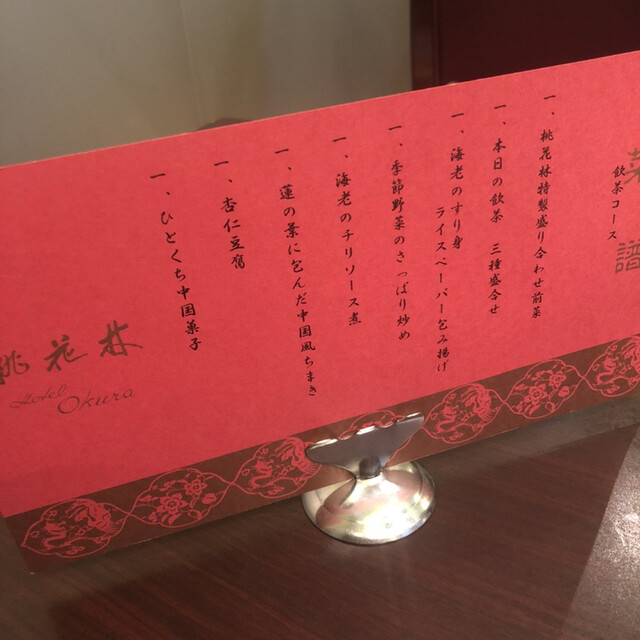 菜譜
飲茶コース
一、桃花林特製盛り合わせ前菜
一、本日の飲茶 三種盛合せ
一、海老のすり身
ライスペーパー包み揚げ
一、季節野菜のさっぱり炒め
一、海老のチリソース煮
一、蓮の葉に包んだ中国風ちまき
一、杏仁豆腐
一、ひとくち中国菓子
桃花林
Hotel Okura